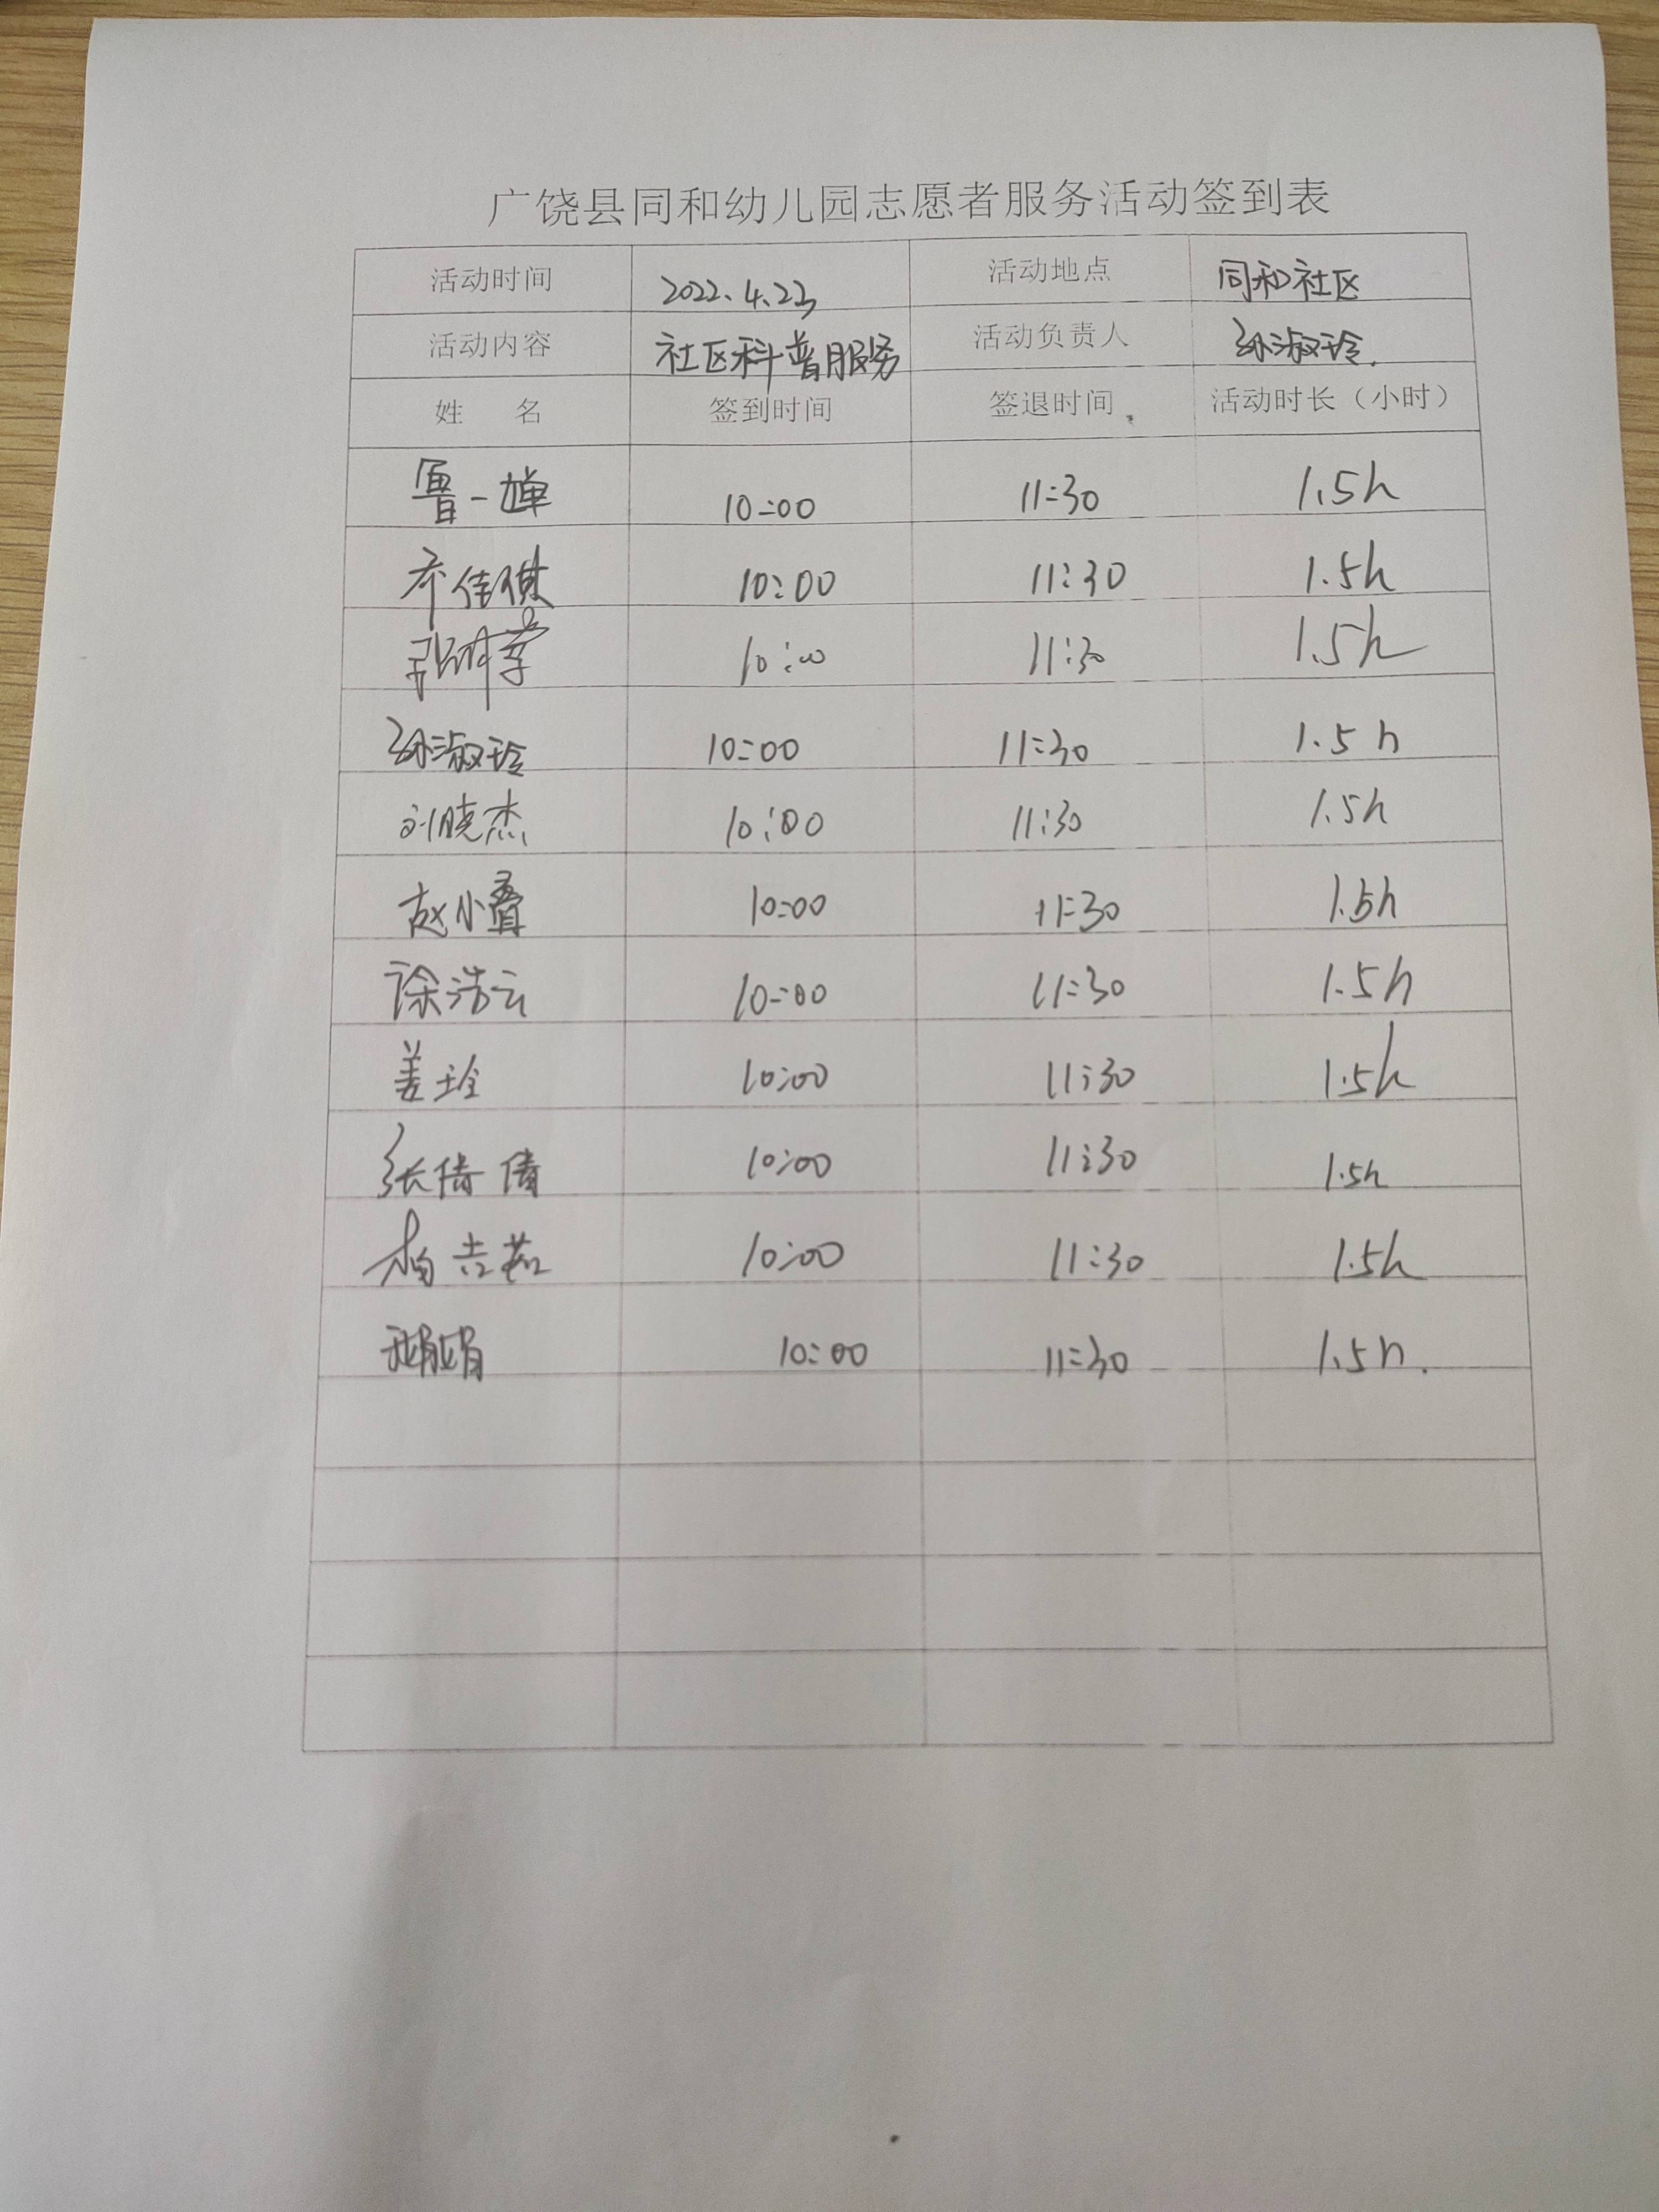 广饶县同和幼儿园志愿者服务活动签到表
活动时间 2022.4.23 活动地点 同和社区
活动内容 社区科普服务 活动负责人 孙淑玲
姓 名 签到时间 签退时间 活动时长（小时）
一 10:00 11:30 1.5h
齐佳琪 10:00 11:30 1.5h
张 10:00 11:30 1.5h
孙淑玲 10:00 11:30 1.5h
刘晓杰 10:00 11:30 1.5h
赵小叠 10:00 11:30 1.5h
徐浩云 10:00 11:30 1.5h
姜玲 10:00 11:30 1.5h
张倩倩 10:00 11:30 1.5h
杨吉茹 10:00 11:30 1.5h
10:00 11:30 1.5h.